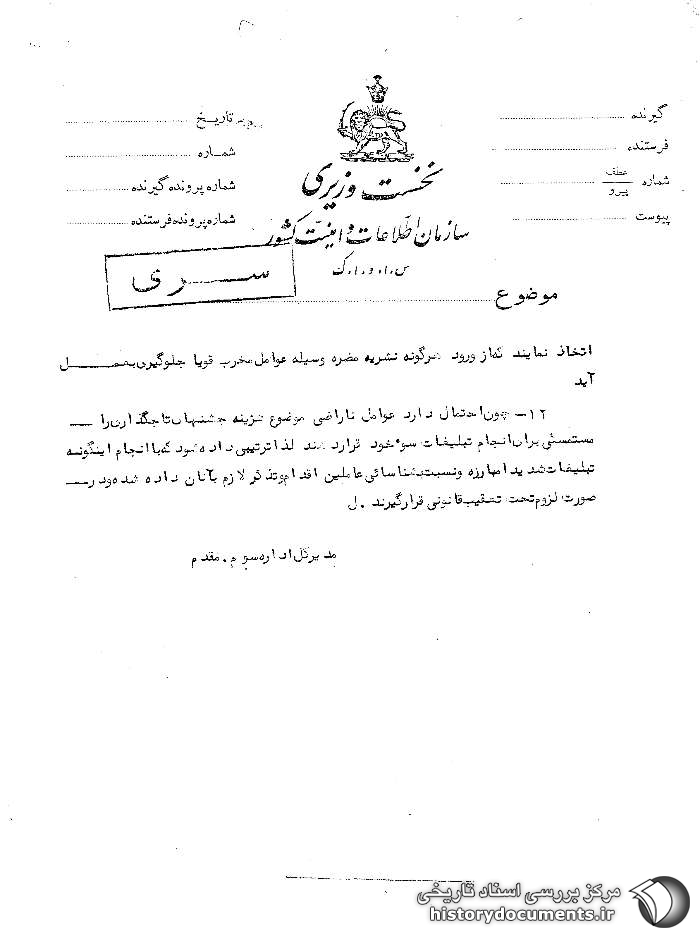 گیرنده
فرستنده
شماره عطف پیرو
پیوست
تاریخ
شماره
شماره پرونده گیرنده
شماره پرونده فرستنده
نخست وزیری
سازمان اطلاعات و امنیت کشور
س.ا.و.ا.ک
سری
موضوع
اتخاذ نمایند که از ورود هرگونه نشریه مضره وسیله عوامل مخرب قویا جلوگیری بعمل
آید
۱۲- چون احتمال دارد عوامل ناراضی موضوع هزینه جشنهای تاجگذاری را
مستمسکی برای انجام تبلیغات سوء خود قرار دهند لذا ترتیبی داده شود که با انجام اینگونه
تبلیغات شدیدا مبارزه و نسبت بشناسائی عاملین اقدام و تذکر لازم بآنان داده شود و در
صورت لزوم تحت تعقیب قانونی قرار گیرند . ل
مدیرکل اداره سوم . مقدم
مرکز بررسی اسناد تاریخی
historydocuments.ir